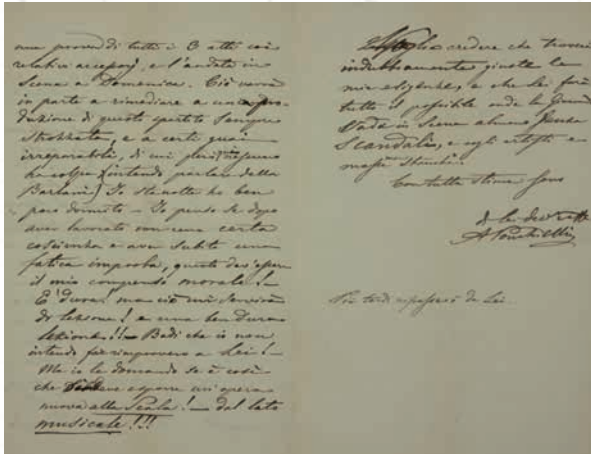 una prova di tutti i 3 atti coi
relativi accessorj, e l'andata in
Scena a Domenica. Ciò varrà
in parte a rimediare a una pro-
duzione di questo spartito sempre
strozzata, e a certi guai
irreparabili, di cui però nessuno
ha colpa (intendo parlare della
Barlani) Io stanotte ho ben
poco dormito – Io penso se dopo
aver lavorato con una certa
coscienza e aver subito una
fatica improba, questo dev'essere
il mio compenso morale!–
E' dura! ma ciò mi servirà
di lezione! e una ben dura
lezione!!– Badi che io non
intendo far rimprovero a Lei!–
Ma io le domando se è così
che si deve esporre un'opera
nuova alla Scala!– dal lato
musicale!!!
Voglio credere che troverà
indubbiamente giusta la
mia esigenza, e che Lei farà
tutto il possibile onde la
vada in Scena almeno senza
Scandali, e cogli artisti e
masse
Con tutta stima sono
di Lei
A Ponchielli
Più tardi ripasserò da Lei